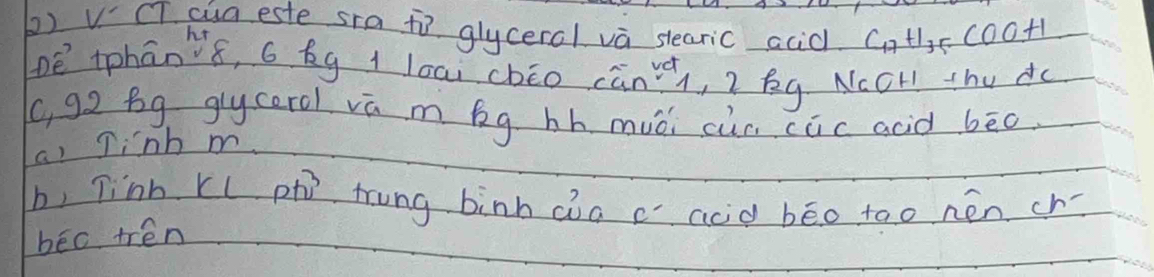 2) V CT của este sra từ glycerol và stearic acid C17H35COOH
Để tphân ht 8,6 kg 1 loại chéo cần vđ 1,2 kg NaOH thu đc
0,92 kg glycerol và m kg hh muối của các acid béo.
a) Tính m.
b) Tính KL ptử trung bình của c acid béo tạo nên ch
béo trên